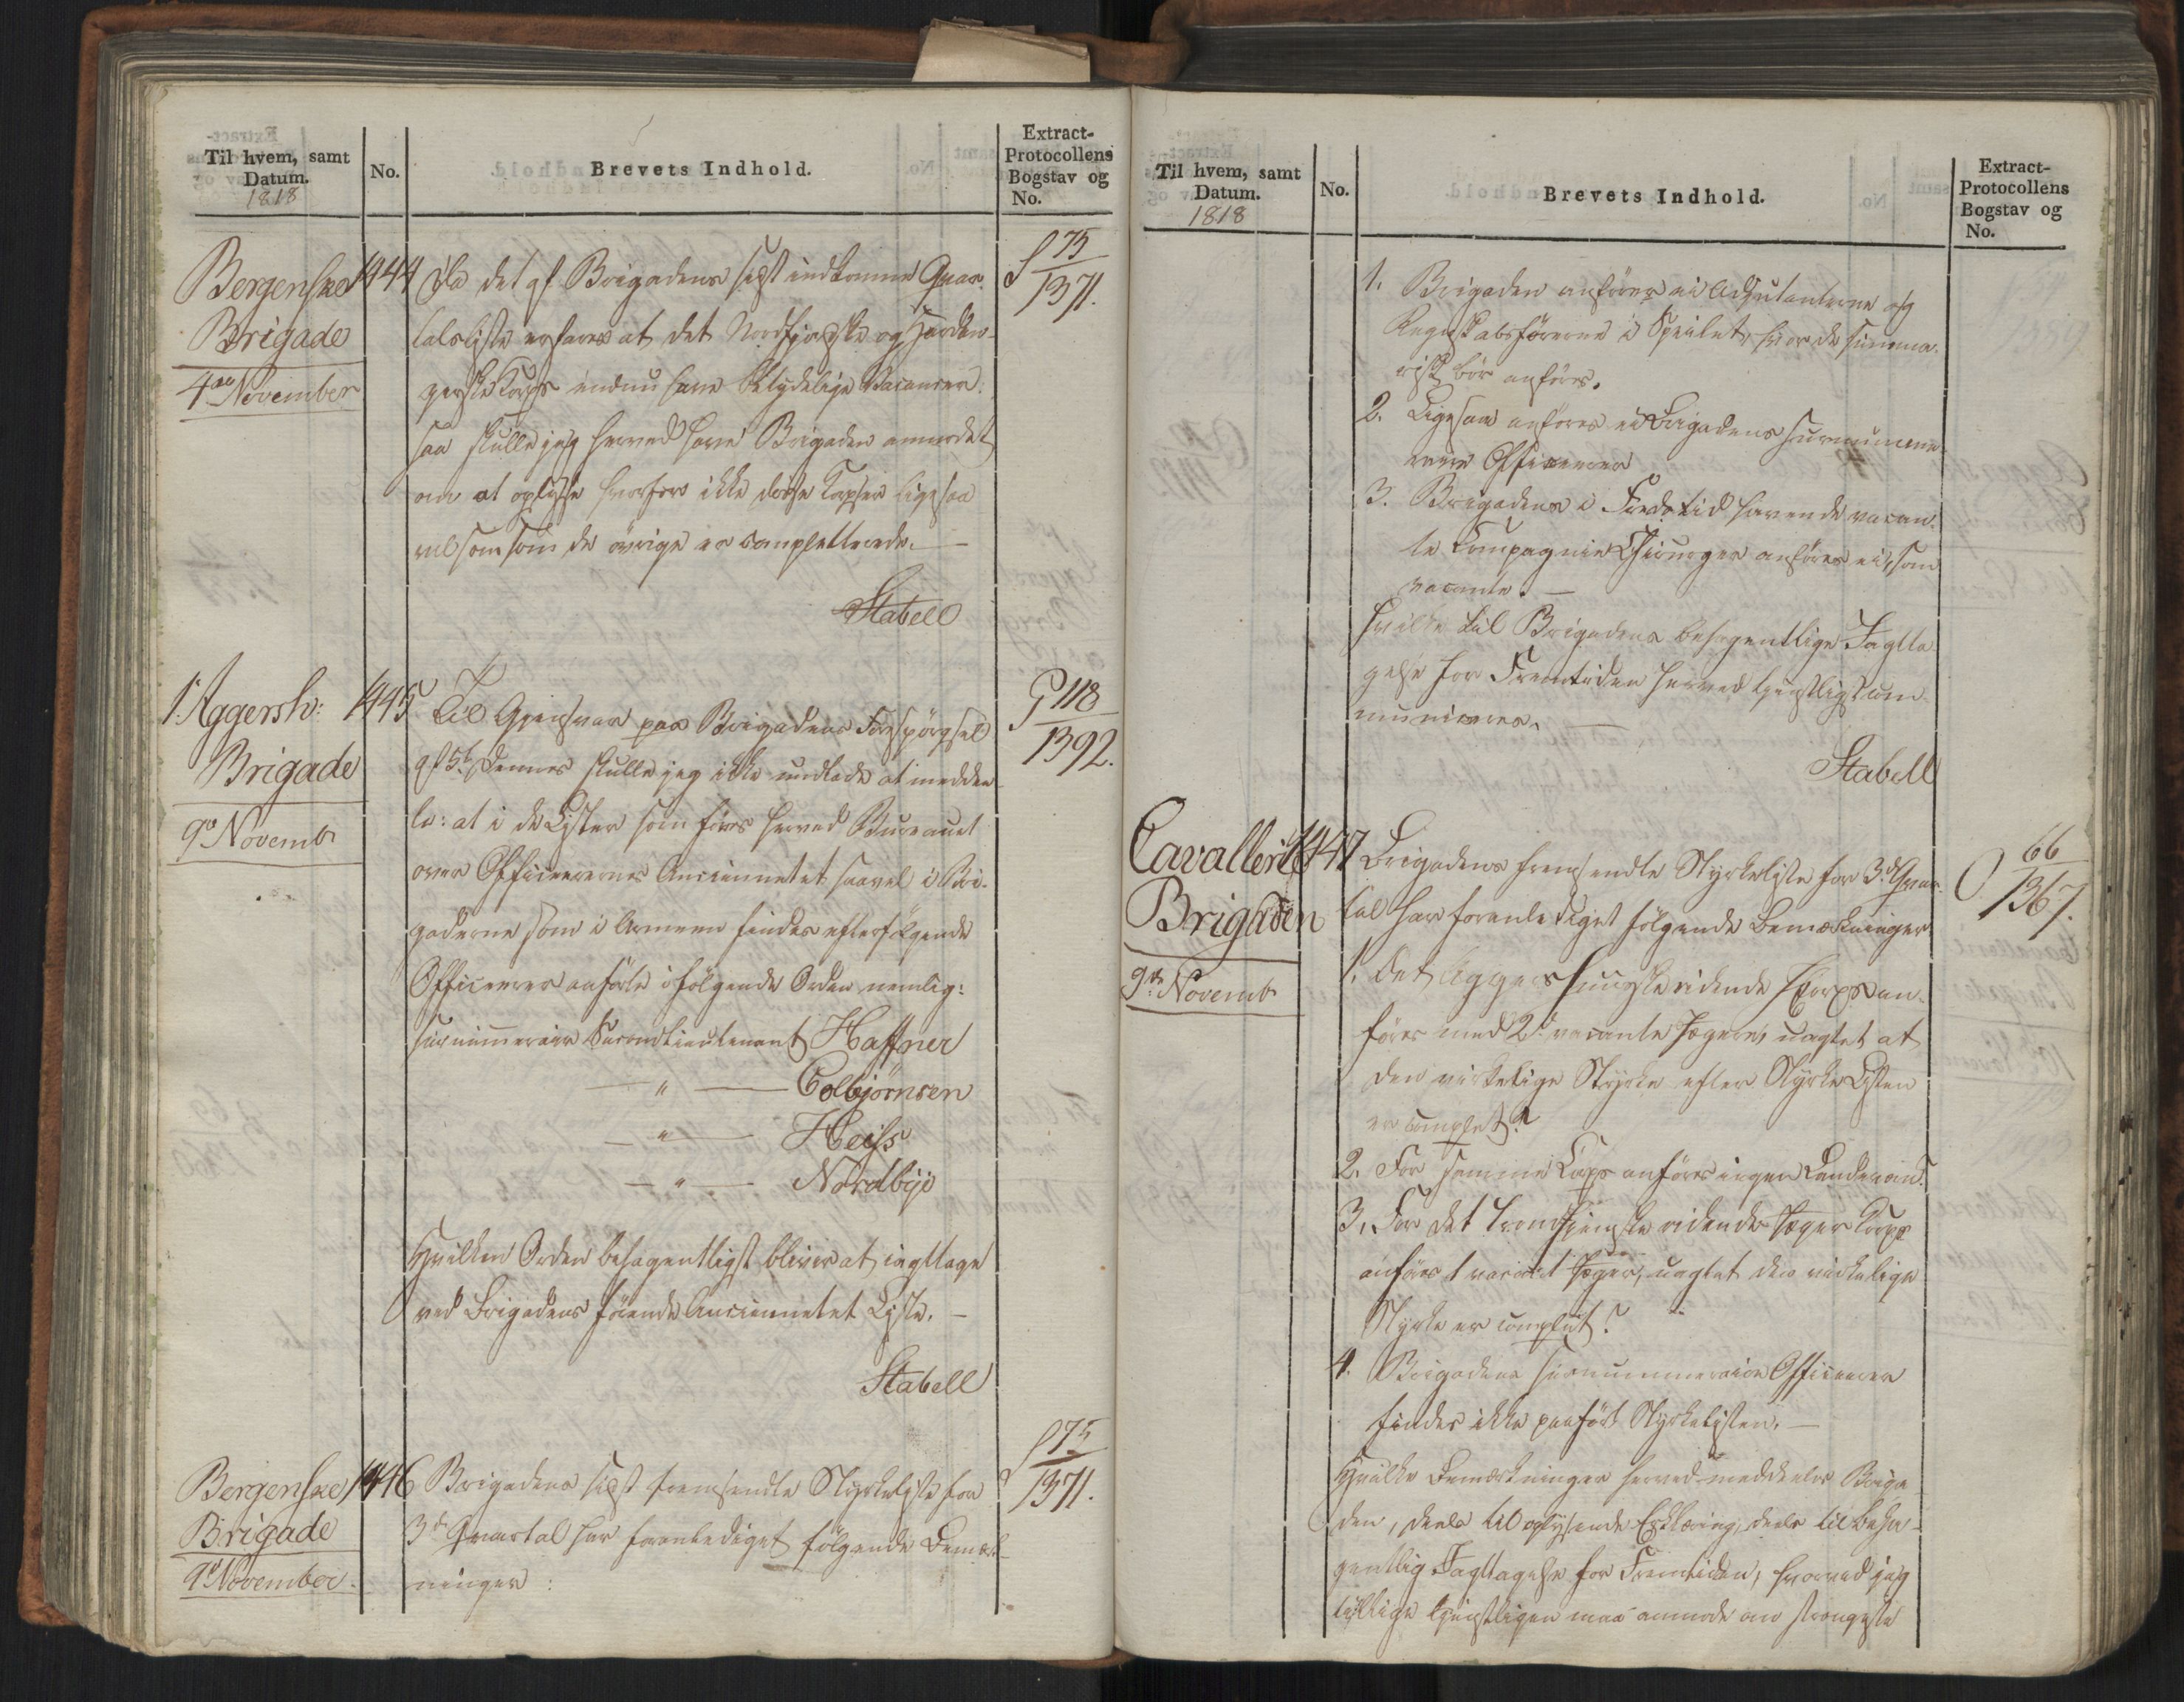 Til hvem, samt
Datum.
1818
No.
Brevets Indhold.
Extract-
Protocollens
Bogstav og
No.
Bergenske
Brigade
4de November
1444
Da det af Brigadens sidst indkomne Quar-
talsliste erfares at det Nordfjordske og Hardan-
gerske Corps endnu have betydelige Vacancer:
saa skulle jeg herved have Brigaden anmodet
om at oplyse hvorfor ikke disse Corpser ligesaa
vel som de øvrige er completterede. —
Stabell
75
1371.
1. Aggersh:
Brigade
9de Novemb
1445
Til Gjensvar paa Brigadens Forespörgsel
af 5t Dennes skulle jeg ikke undlade at medde-
le: at i de Lister som föres herved Bureauet
over Officerernes Anciennetet saavel i Bri-
gaderne som i Armeen findes efterfölgende
Officerer anförte i fölgende Orden nemlig:
surnumerair Secondlieutenant Haffner
— " — Colbjörnsen
— " — Heiss
— " — Nordbye
Hvilken Orden behagentligst bliver at iagttage
ved Brigadens förende Anciennetet Liste. —
Stabell
118
1392.
Bergenske
Brigade
9de November
1446
Brigadens sidst fremsendte Styrkeliste for
3de Quartal har foranlediget fölgende Bemærk-
ninger:
75
1371.
Til hvem, samt
Datum.
1818
No.
Brevets Indhold.
Extract-
Protocollens
Bogstav og
No.
1. Brigaden anförer ei Adjutanterne og
Regnskabsförerne i Speilet, hvor de summa-
risk bör anföres.
2. Ligesaa anföres ei Brigadens surnumme-
raire Officerer
3. Brigadens i Fredstid havende vacan-
te Compagnie Chirurger anföres ei som
vacante. —
Hvilke til Brigadens behagentlige Iagtta-
gelse for Fremtiden herved tjenstligst com-
municeres. —
Stabell
Cavallerie
Brigaden
9de Novemb
1447
Brigadens fremsendte Styrkeliste for 3de Quar-
tal har foranlediget fölgende Bemærkninger
1. Det Aggershuusske ridende Corps an-
föres med 2de vacante Jægere, uagtet at
den virkelige Styrke efter Styrke Listen
er complet?
2. For samme Corps anföres ingen Landeværn?
3. For det Trondhjemske ridende Jæger Corps
anföres 1 vacant Jæger, uagtet den virkelige
Styrke er complet?
4. Brigadens surnummeraire Officerer
findes ikke paafört Styrkelisten. —
Hvilke Bemærkninger herved meddeles Briga-
den, deels til oplysende Erklæring, deels til beha-
gentlig Iagttagelse for Fremtiden, hvorved jeg
tillige tjenstligen maa anmode om strengeste
66
1367.